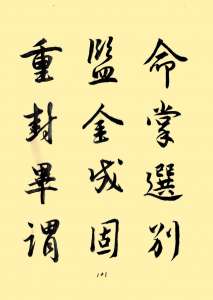 命掌選別
監金成固
重封畢謂
141